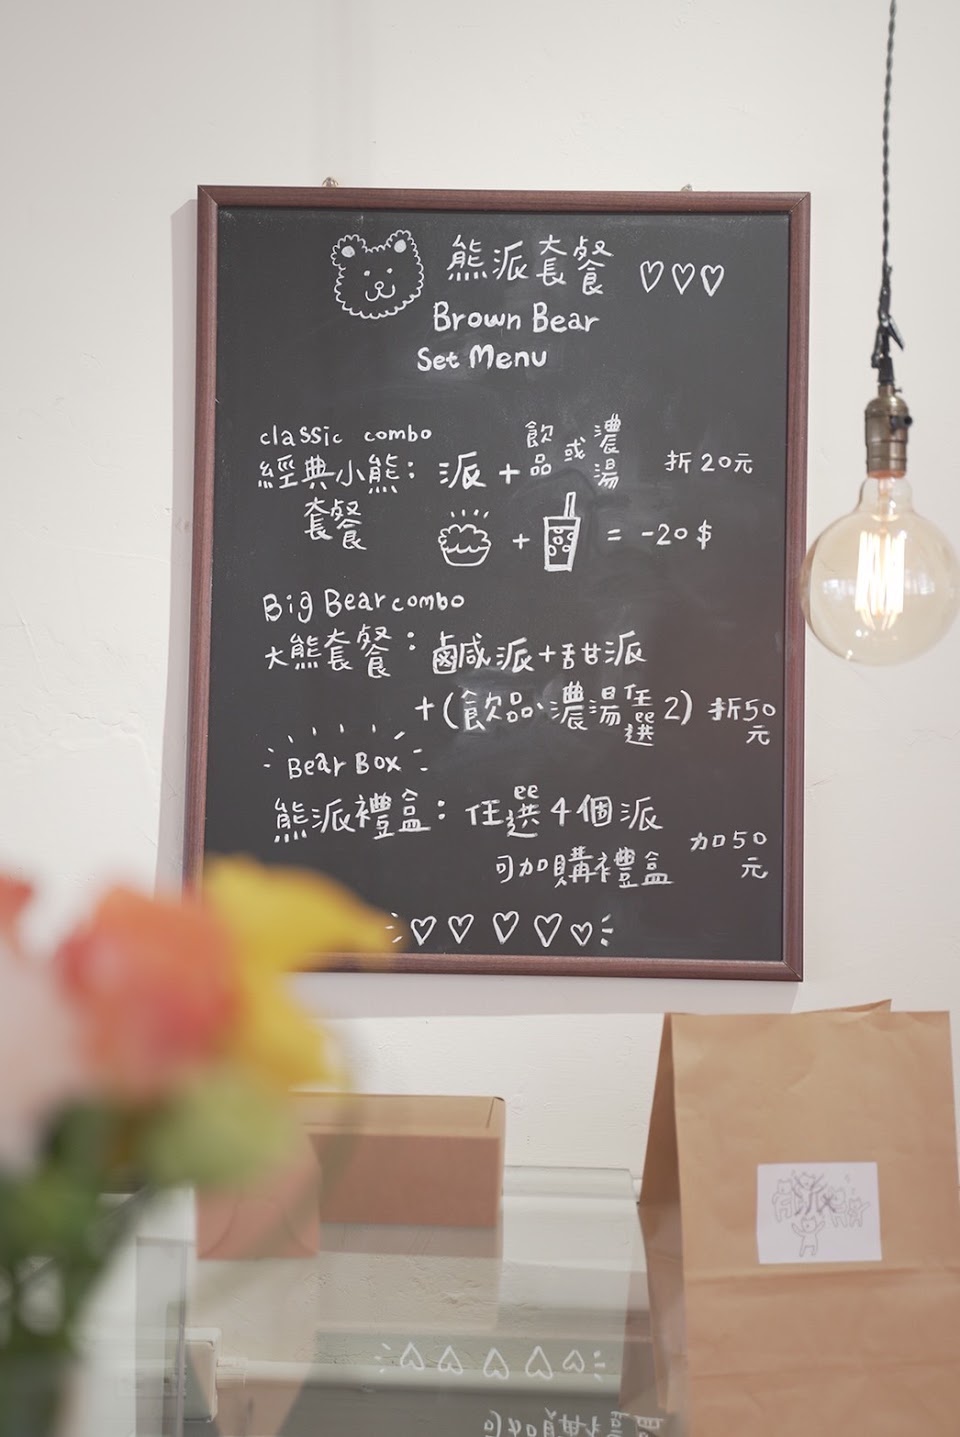 熊派套餐 ♡♡♡
Brown Bear
Set Menu
classic combo
經典小熊套餐：派＋飲品或濃湯 折20元
+ = -20$
Big Bear combo
大熊套餐：鹹派＋甜派
＋(飲品、濃湯任選2) 折50元
Bear Box
熊派禮盒：任選4個派
可加購禮盒 加50元
派